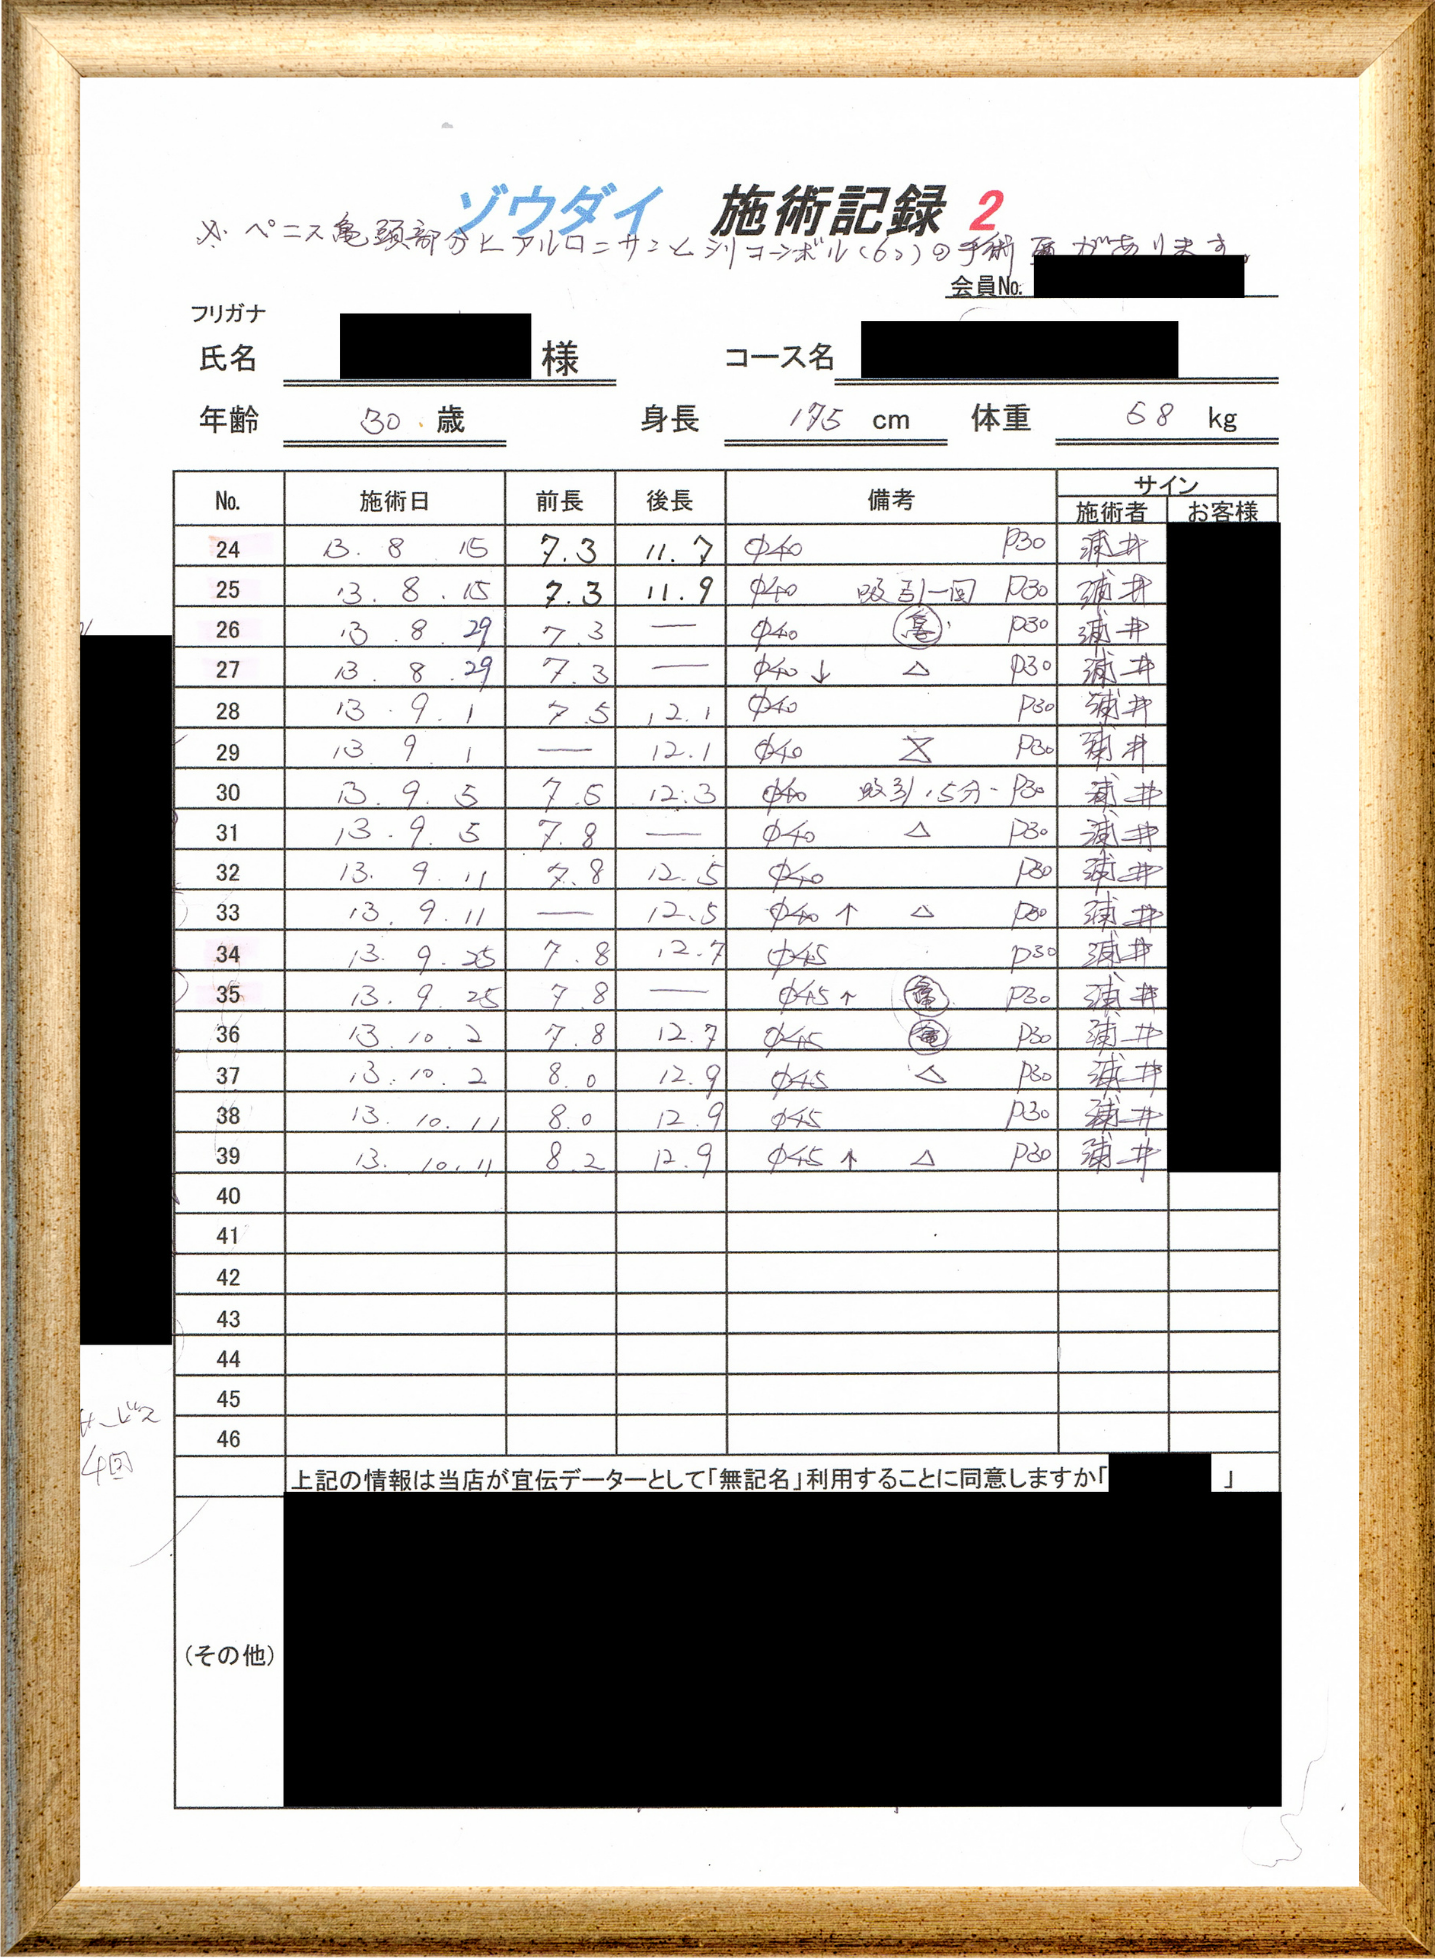 ゾウダイ 施術記録 2
※ ペニス亀頭部分ヒアルロニサンとシリコーンボール(6コ)の手術 があります。
会員No.
フリガナ
氏名 様 コース名
年齢 30 歳 身長 175 cm 体重 68 kg
No. 施術日 前長 後長 備考 サイン
施術者 お客様
24 13. 8. 15 7.3 11.7 φ40 P30 浦井
25 13. 8. 15 7.3 11.9 φ40 吸引一回 P30 浦井
26 13. 8. 29 7.3 — φ40 P30 浦井
27 13. 8. 29 7.3 — φ40 ↓ △ P30 浦井
28 13. 9. 1 7.5 12.1 φ40 P30 浦井
29 13. 9. 1 — 12.1 φ40 P30 浦井
30 13. 9. 5 7.5 12.3 φ40 吸引.5分 - P30 浦井
31 13. 9. 5 7.8 — φ40 △ P30 浦井
32 13. 9. 11 7.8 12.5 φ40 P30 浦井
33 13. 9. 11 — 12.5 φ40 ↑ △ P30 浦井
34 13. 9. 25 7.8 12.7 φ45 P30 浦井
35 13. 9. 25 7.8 — φ45 ↑ 亀 P30 浦井
36 13. 10. 2 7.8 12.7 φ45 亀 P30 浦井
37 13. 10. 2 8.0 12.9 φ45 △ P30 浦井
38 13. 10. 11 8.0 12.9 φ45 P30 浦井
39 13. 10. 11 8.2 12.9 φ45 ↑ △ P30 浦井
40
41
42
43
44
45
46
サービス
4回
上記の情報は当店が宣伝データーとして「無記名」利用することに同意しますか「 」
(その他)